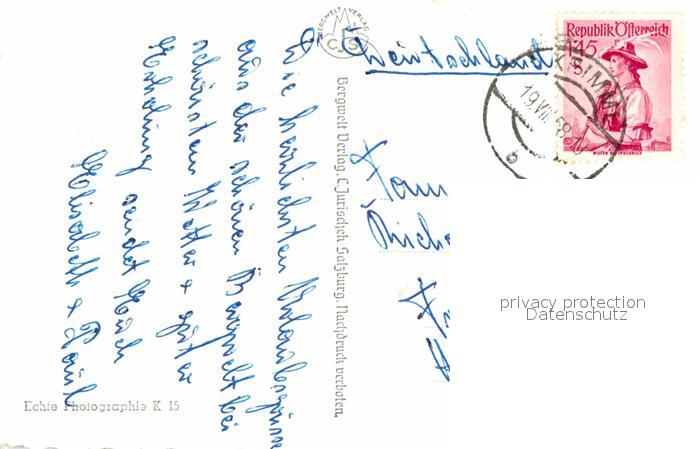 Die herzlichsten Urlaubsgrüsse
aus der schönen Bergwelt bei
schönsten Wetter + guter
Erholung sendet Euch
Elisabeth + Paul
Echte Photographie K 15
BERGWELT VERLAG
CJS
Bergwelt Verlag, C. Jurischek Salzburg. Nachdruck verboten.
Deutschland
Fam
Republik Österreich
1.45
19.VIII.58
b
privacy protection
Datenschutz